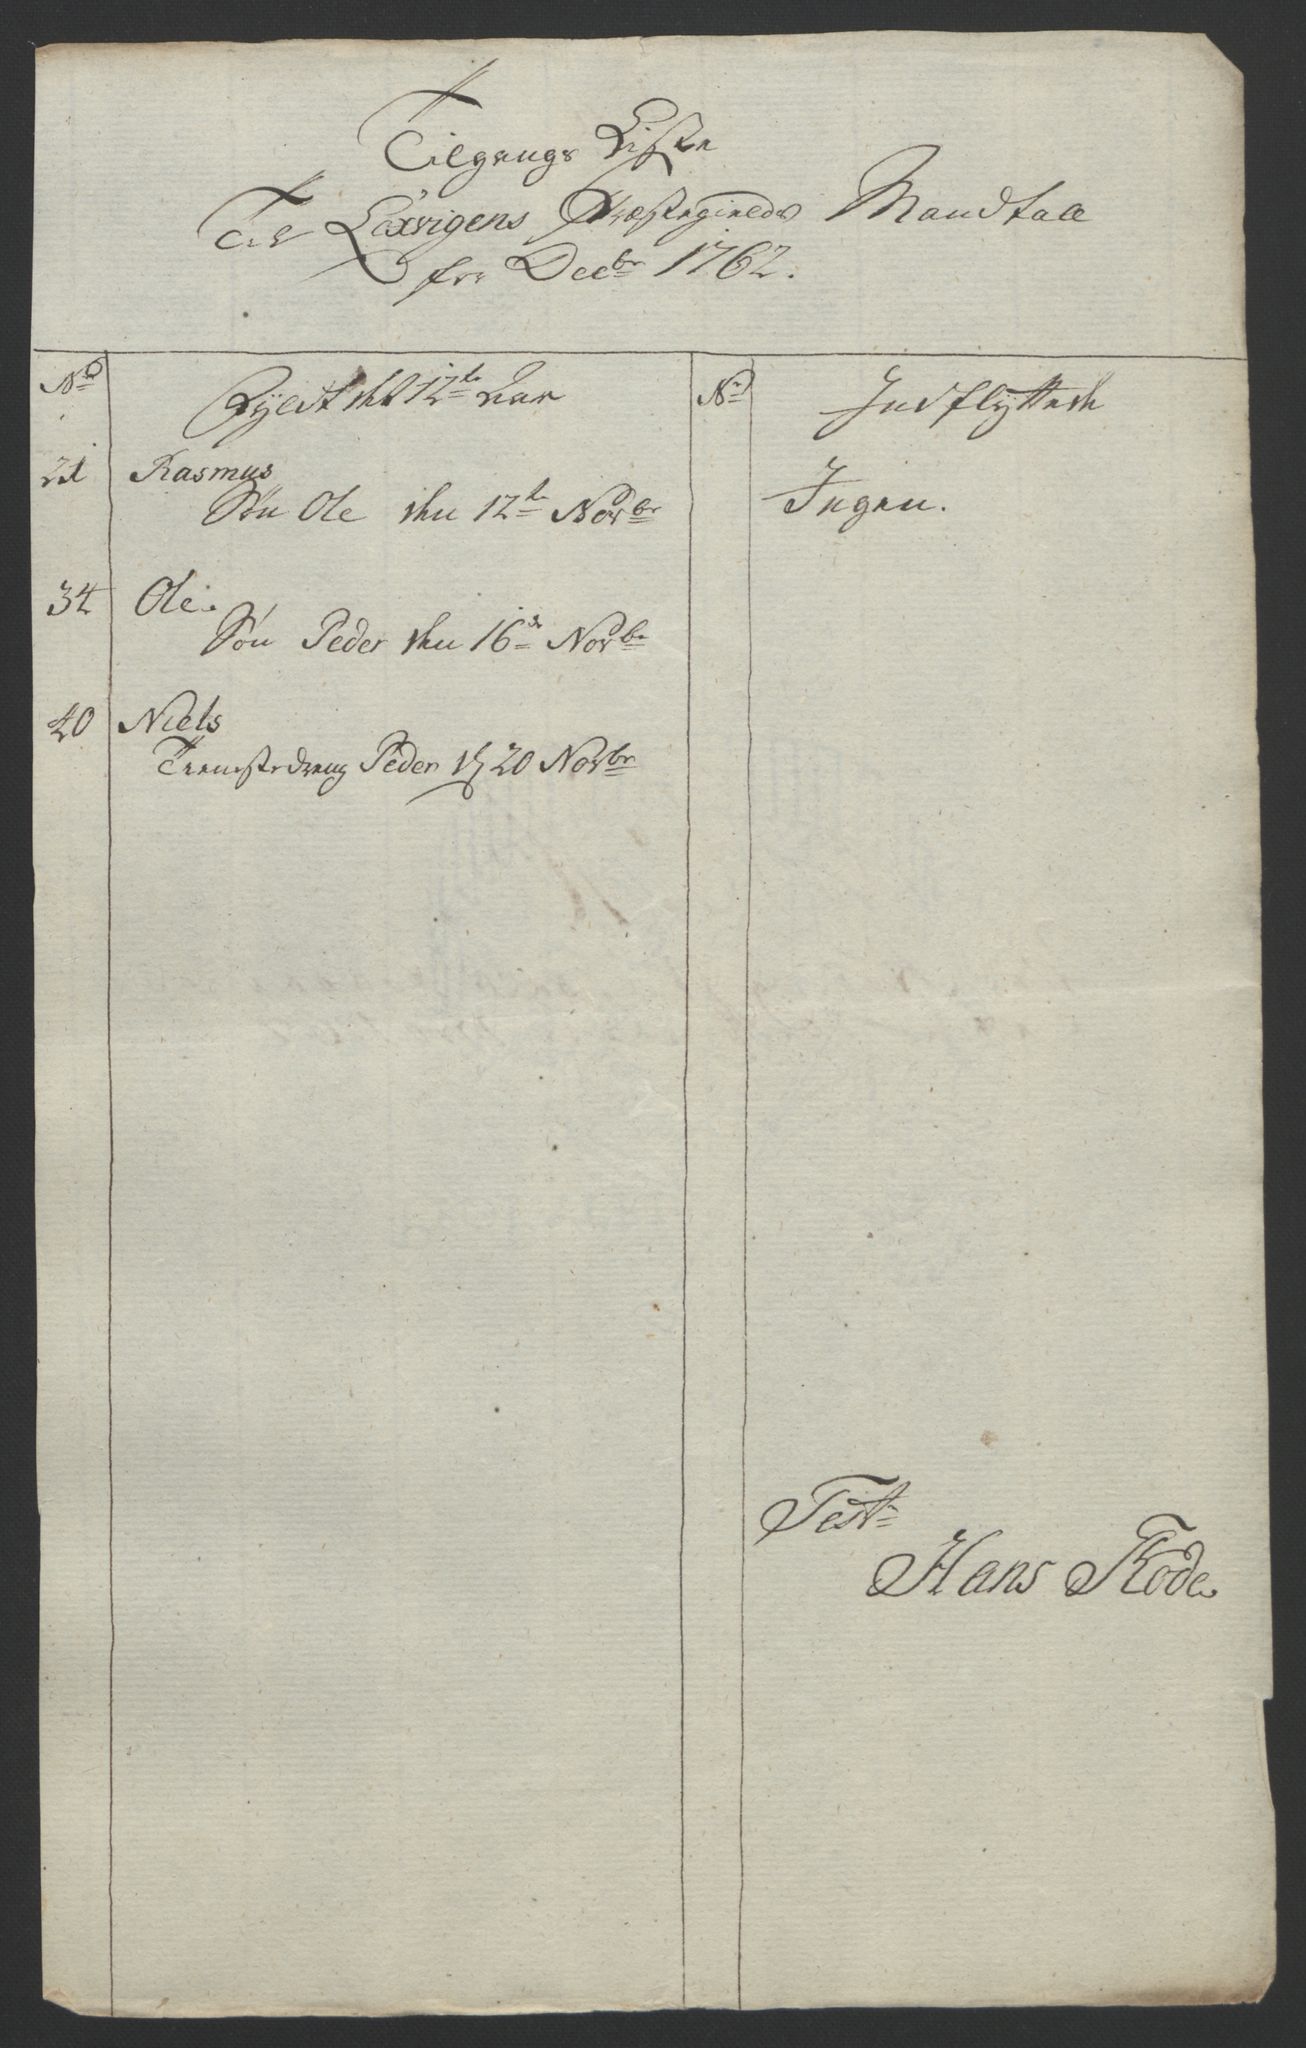 Tilgangs Liste
Til Lexvigens Præstegields Mandtall
for Decbr 1762.
No Fyldt det 12te Aar
No Indflyttede
21 Rasmus
Søn Ole den 12te Novbr
Ingen.
34 Ole
Søn Peder den 16de Novbr
40 Niels
Tienestedreng Peder d 20 Novbr
Test
Hans Rode